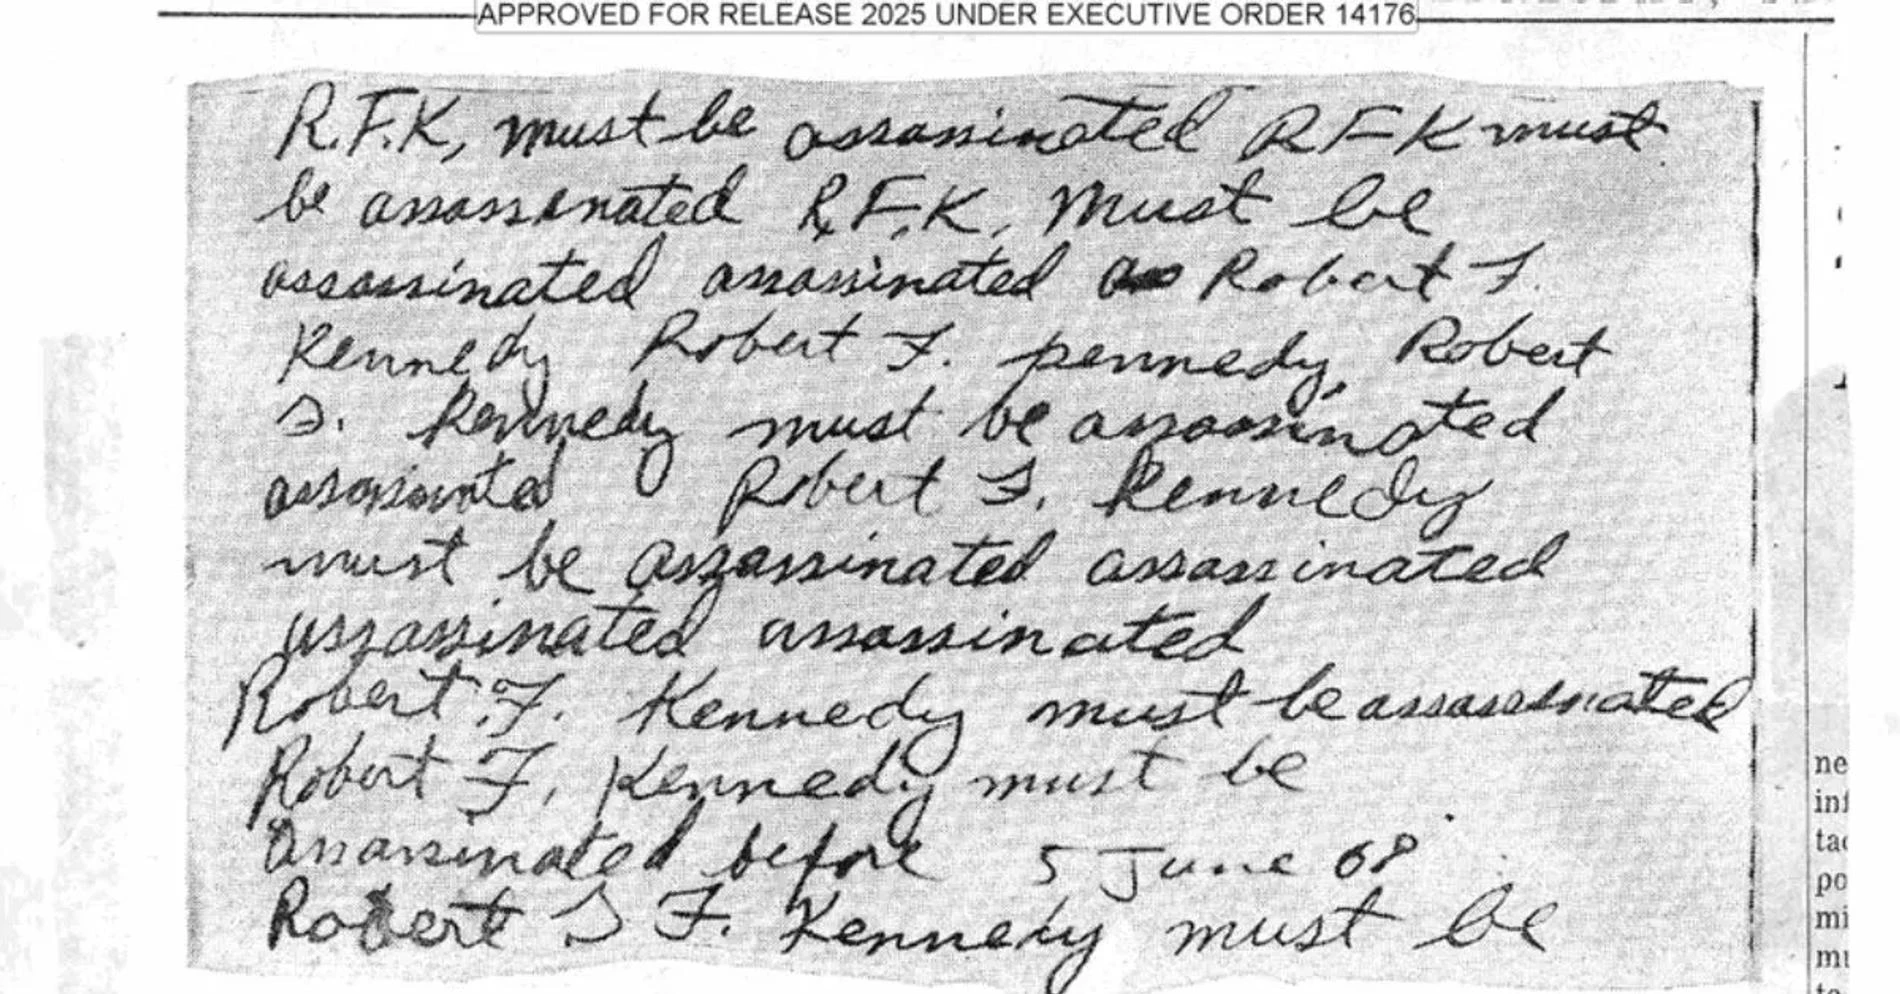 APPROVED FOR RELEASE 2025 UNDER EXECUTIVE ORDER 14176
R.F.K, must be assassinated RFK must
be assassinated R.F.K. Must be
assassinated assassinated Robert F.
Kennedy Robert F. pennedy, Robert
F. Kennedy must be assassinated
assassinated Robert F. Kennedy
must be assassinated assassinated
assassinated assassinated
Robert F. Kennedy must be assassinated
Robert F. Kennedy must be
assassinated before 5 June 68
Robert F. Kennedy must be
ne
inf
tac
po
mi
mu